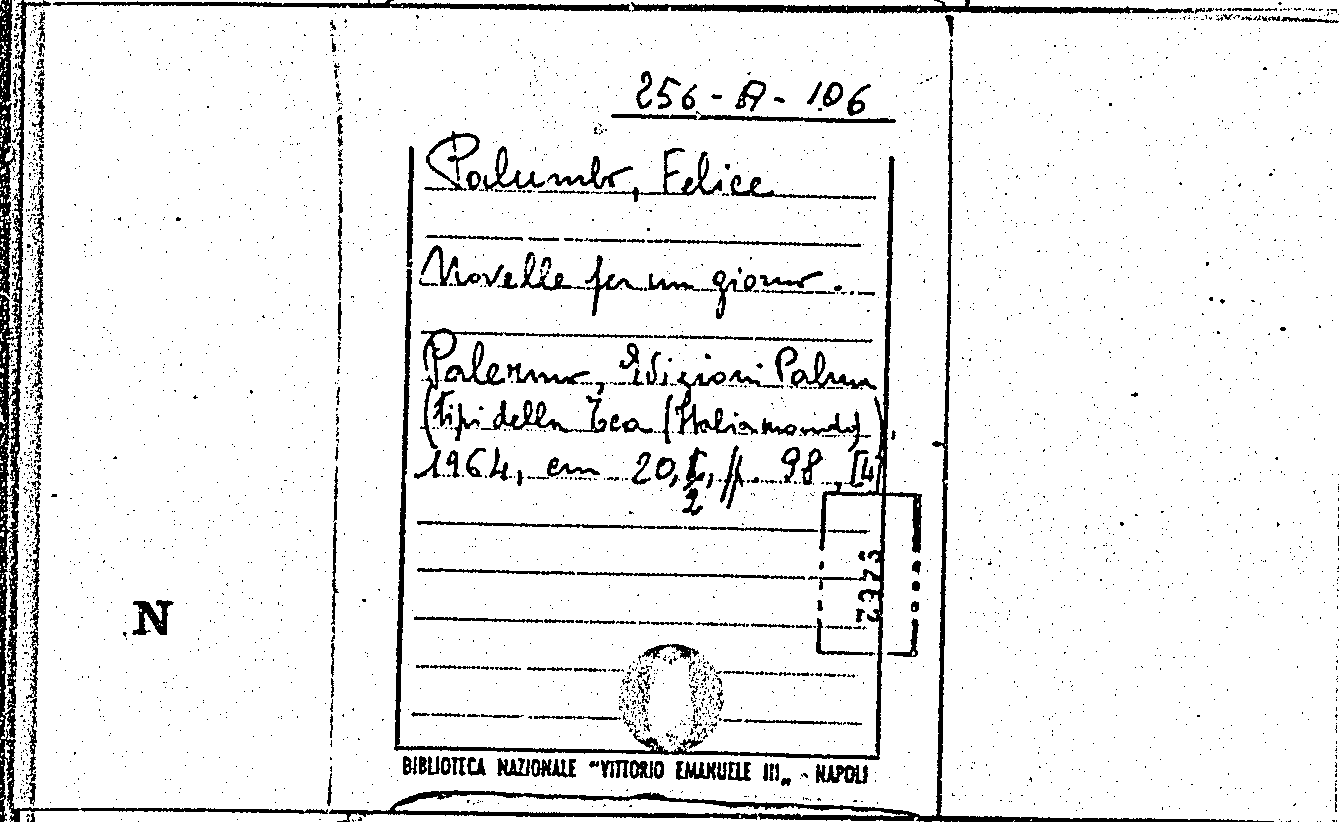 256-A-106
Palumbo, Felice
Novelle per un giorno.
Palermo, Edizioni Palma
(Tipi della Tea (Italiamondo)),
1964, cm 20,5, pp. 98, [4]
N
BIBLIOTECA NAZIONALE "VITTORIO EMANUELE III„ - NAPOLI